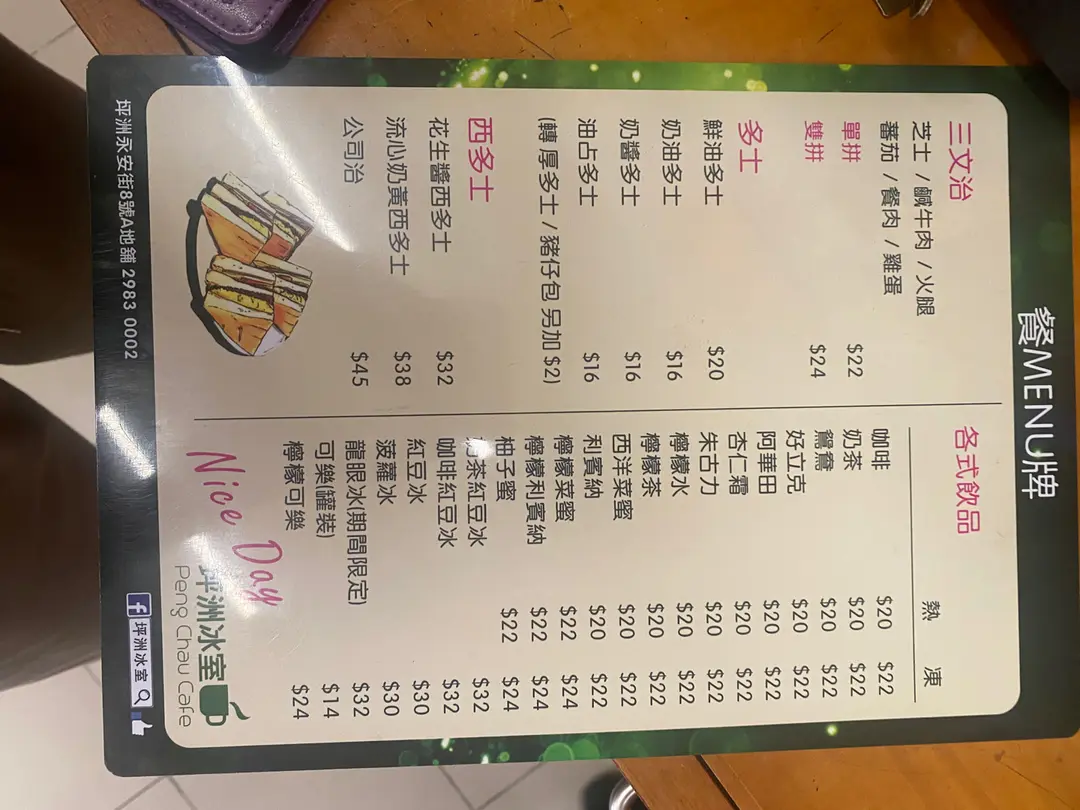 餐MENU牌
三文治
芝士 / 鹹牛肉 / 火腿
蕃茄 / 餐肉 / 雞蛋
單拼 $22
雙拼 $24
多士
鮮油多士 $20
奶油多士 $16
奶醬多士 $16
油占多士 $16
(轉 厚多士 / 豬仔包 另加 $2)
西多士
花生醬西多士 $32
流心奶黃西多士 $38
公司治 $45
各式飲品
熱 凍
咖啡 $20 $22
奶茶 $20 $22
鴛鴦 $20 $22
好立克 $20 $22
阿華田 $20 $22
杏仁霜 $20 $22
朱古力 $20 $22
檸檬水 $20 $22
檸檬茶 $20 $22
西洋菜蜜 $20 $22
利賓納 $20 $22
檸檬菜蜜 $22 $24
檸檬利賓納 $22 $24
柚子蜜 $22 $24
奶茶紅豆冰 $32
咖啡紅豆冰 $32
紅豆冰 $30
菠蘿冰 $30
龍眼冰(期間限定) $32
可樂(罐裝) $14
檸檬可樂 $24
Nice Day
坪洲冰室
Peng Chau Cafe
坪洲永安街8號A地舖 2983 0002
f 坪洲冰室